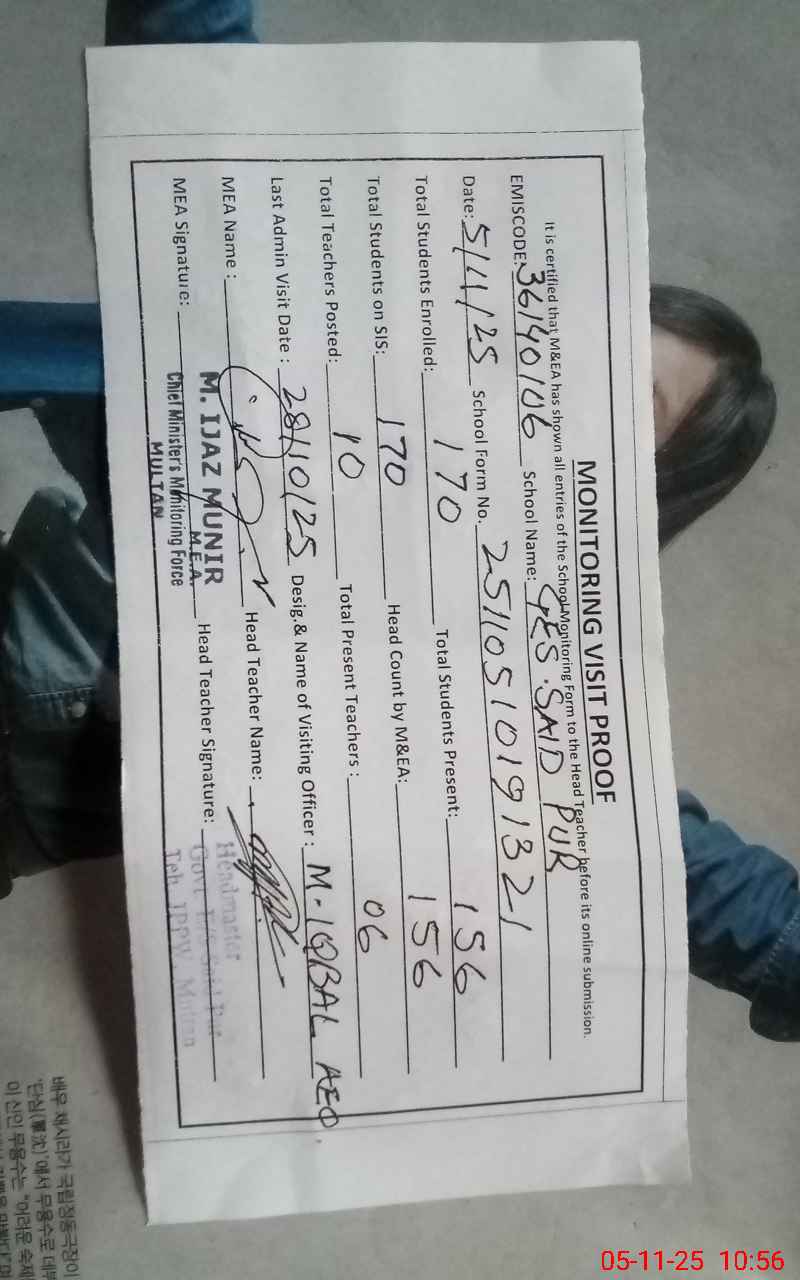 MONITORING VISIT PROOF
It is certified that M&EA has shown all entries of the School Monitoring Form to the Head Teacher before its online submission.
EMISCODE: 36140106 School Name: GES. SAID PUR
Date: 5/11/25 School Form No. 25110510191321
Total Students Enrolled: 170 Total Students Present: 156
Total Students on SIS: 170 Head Count by M&EA: 156
Total Teachers Posted: 10 Total Present Teachers: 06
Last Admin Visit Date: 28/10/25 Desig.& Name of Visiting Officer: M. IQBAL AEO
MEA Name: Head Teacher Name:
M. IJAZ MUNIR
M.E.A.
MEA Signature: Head Teacher Signature:
Chief Minister's Monitoring Force
MULTAN
Headmaster
Govt. E/S Said Pur
Teh. JPPW, Multan
배우 채시라가 국립정동극장이
'단심(單沈)'에서 무용수로 데뷔
이 신인 무용수는 "어려운 숙제
05-11-25 10:56